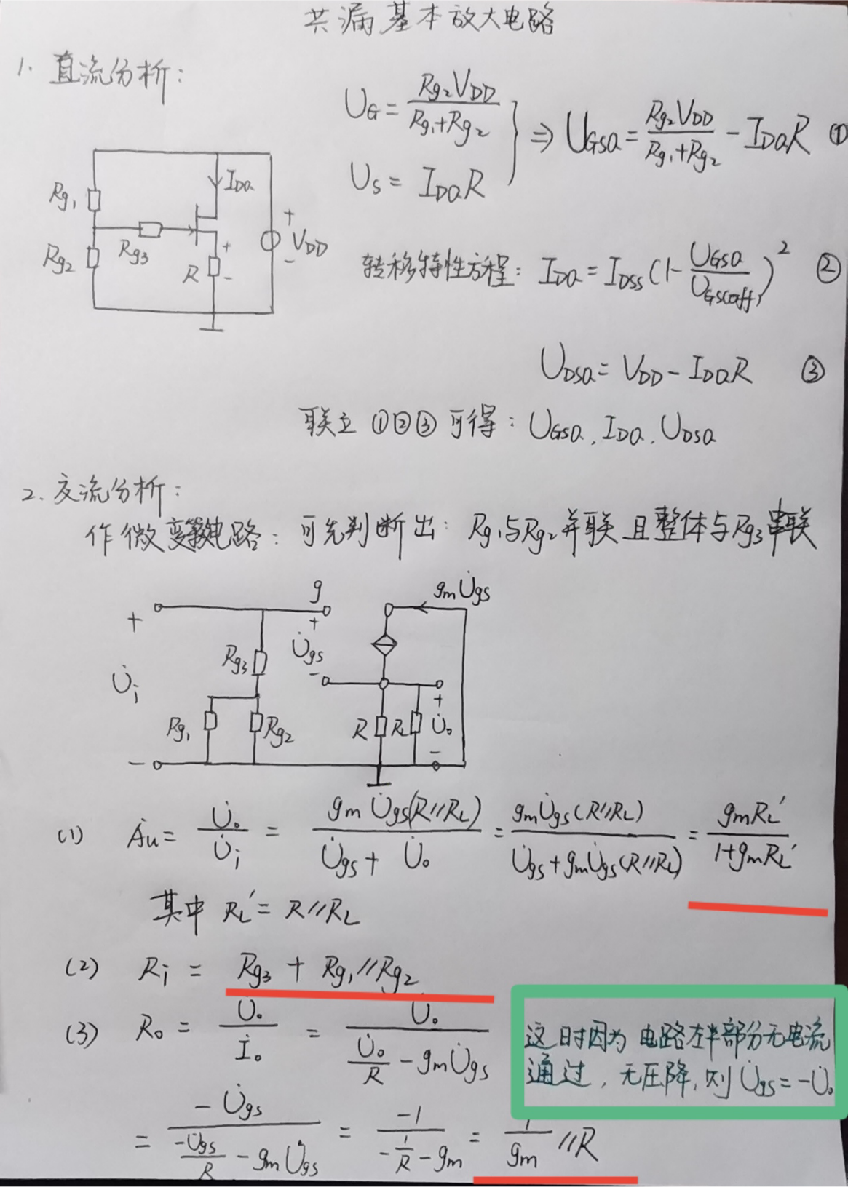 共漏基本放大电路
1. 直流分析:
U_G = Rg2 V_DD / (Rg1+Rg2)
U_S = I_DQ R
} ⇒ U_GSQ = Rg2 V_DD / (Rg1+Rg2) - I_DQ R ①
Rg1
I_DQ
Rg2
Rg3
R
+
-
+
V_DD
-
转移特性方程: I_DQ = I_DSS (1 - U_GSQ / U_GS(off))² ②
U_DSQ = V_DD - I_DQ R ③
联立 ①②③ 可得: U_GSQ, I_DQ, U_DSQ
2. 交流分析:
作微变等效电路: 可先判断出: Rg1与Rg2并联且整体与Rg3串联
g
gm U̇gs
+
U̇i
-
Rg3
Rg1
Rg2
+
U̇gs
-
R
RL
+
U̇o
-
(1) Ȧu = U̇o / U̇i = gm U̇gs(R//RL) / (U̇gs + U̇o) = gm U̇gs(R//RL) / (U̇gs + gm U̇gs(R//RL)) = gm RL' / (1+gm RL')
其中 RL' = R//RL
(2) Ri = Rg3 + Rg1//Rg2
(3) Ro = U̇o / İo = U̇o / (U̇o/R - gm U̇gs)
这时因为电路左半部分无电流
通过, 无压降, 则 U̇gs = -U̇o
= -U̇gs / (-U̇gs/R - gm U̇gs) = -1 / (-1/R - gm) = 1/gm //R